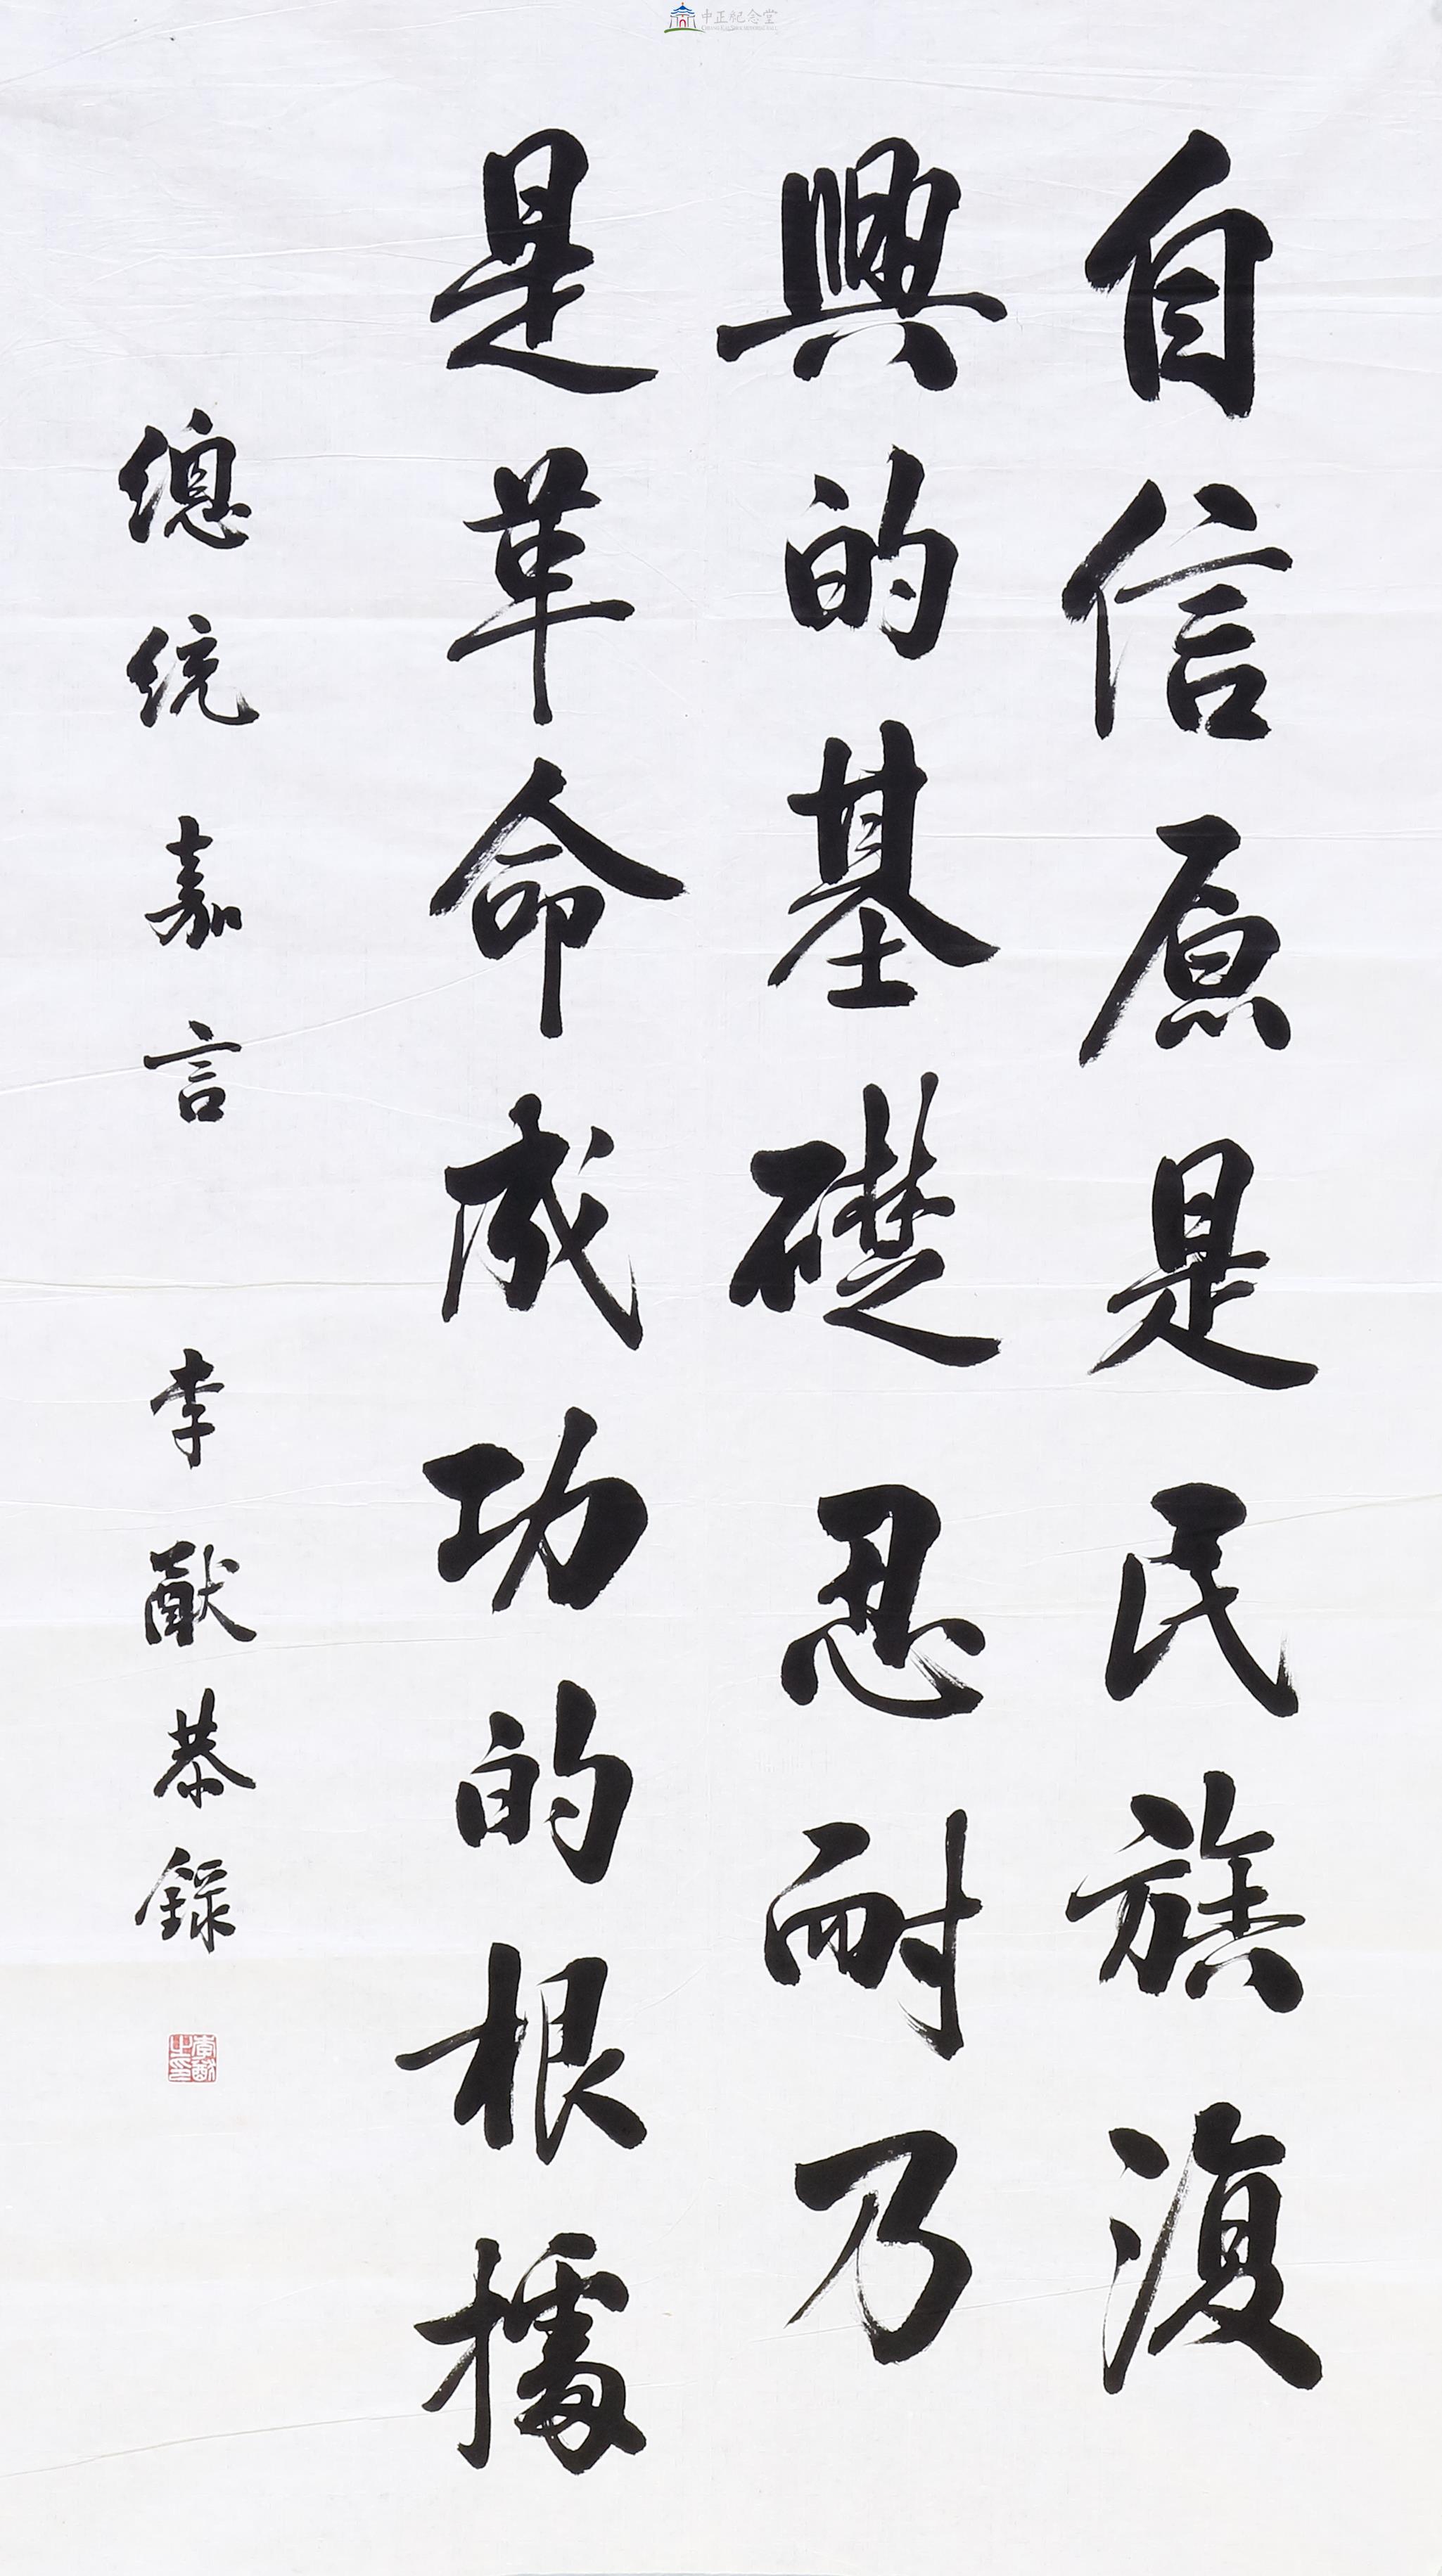 中正紀念堂
自信原是民族復
興的基礎忍耐乃
是革命成功的根據
總統嘉言 李猷恭錄